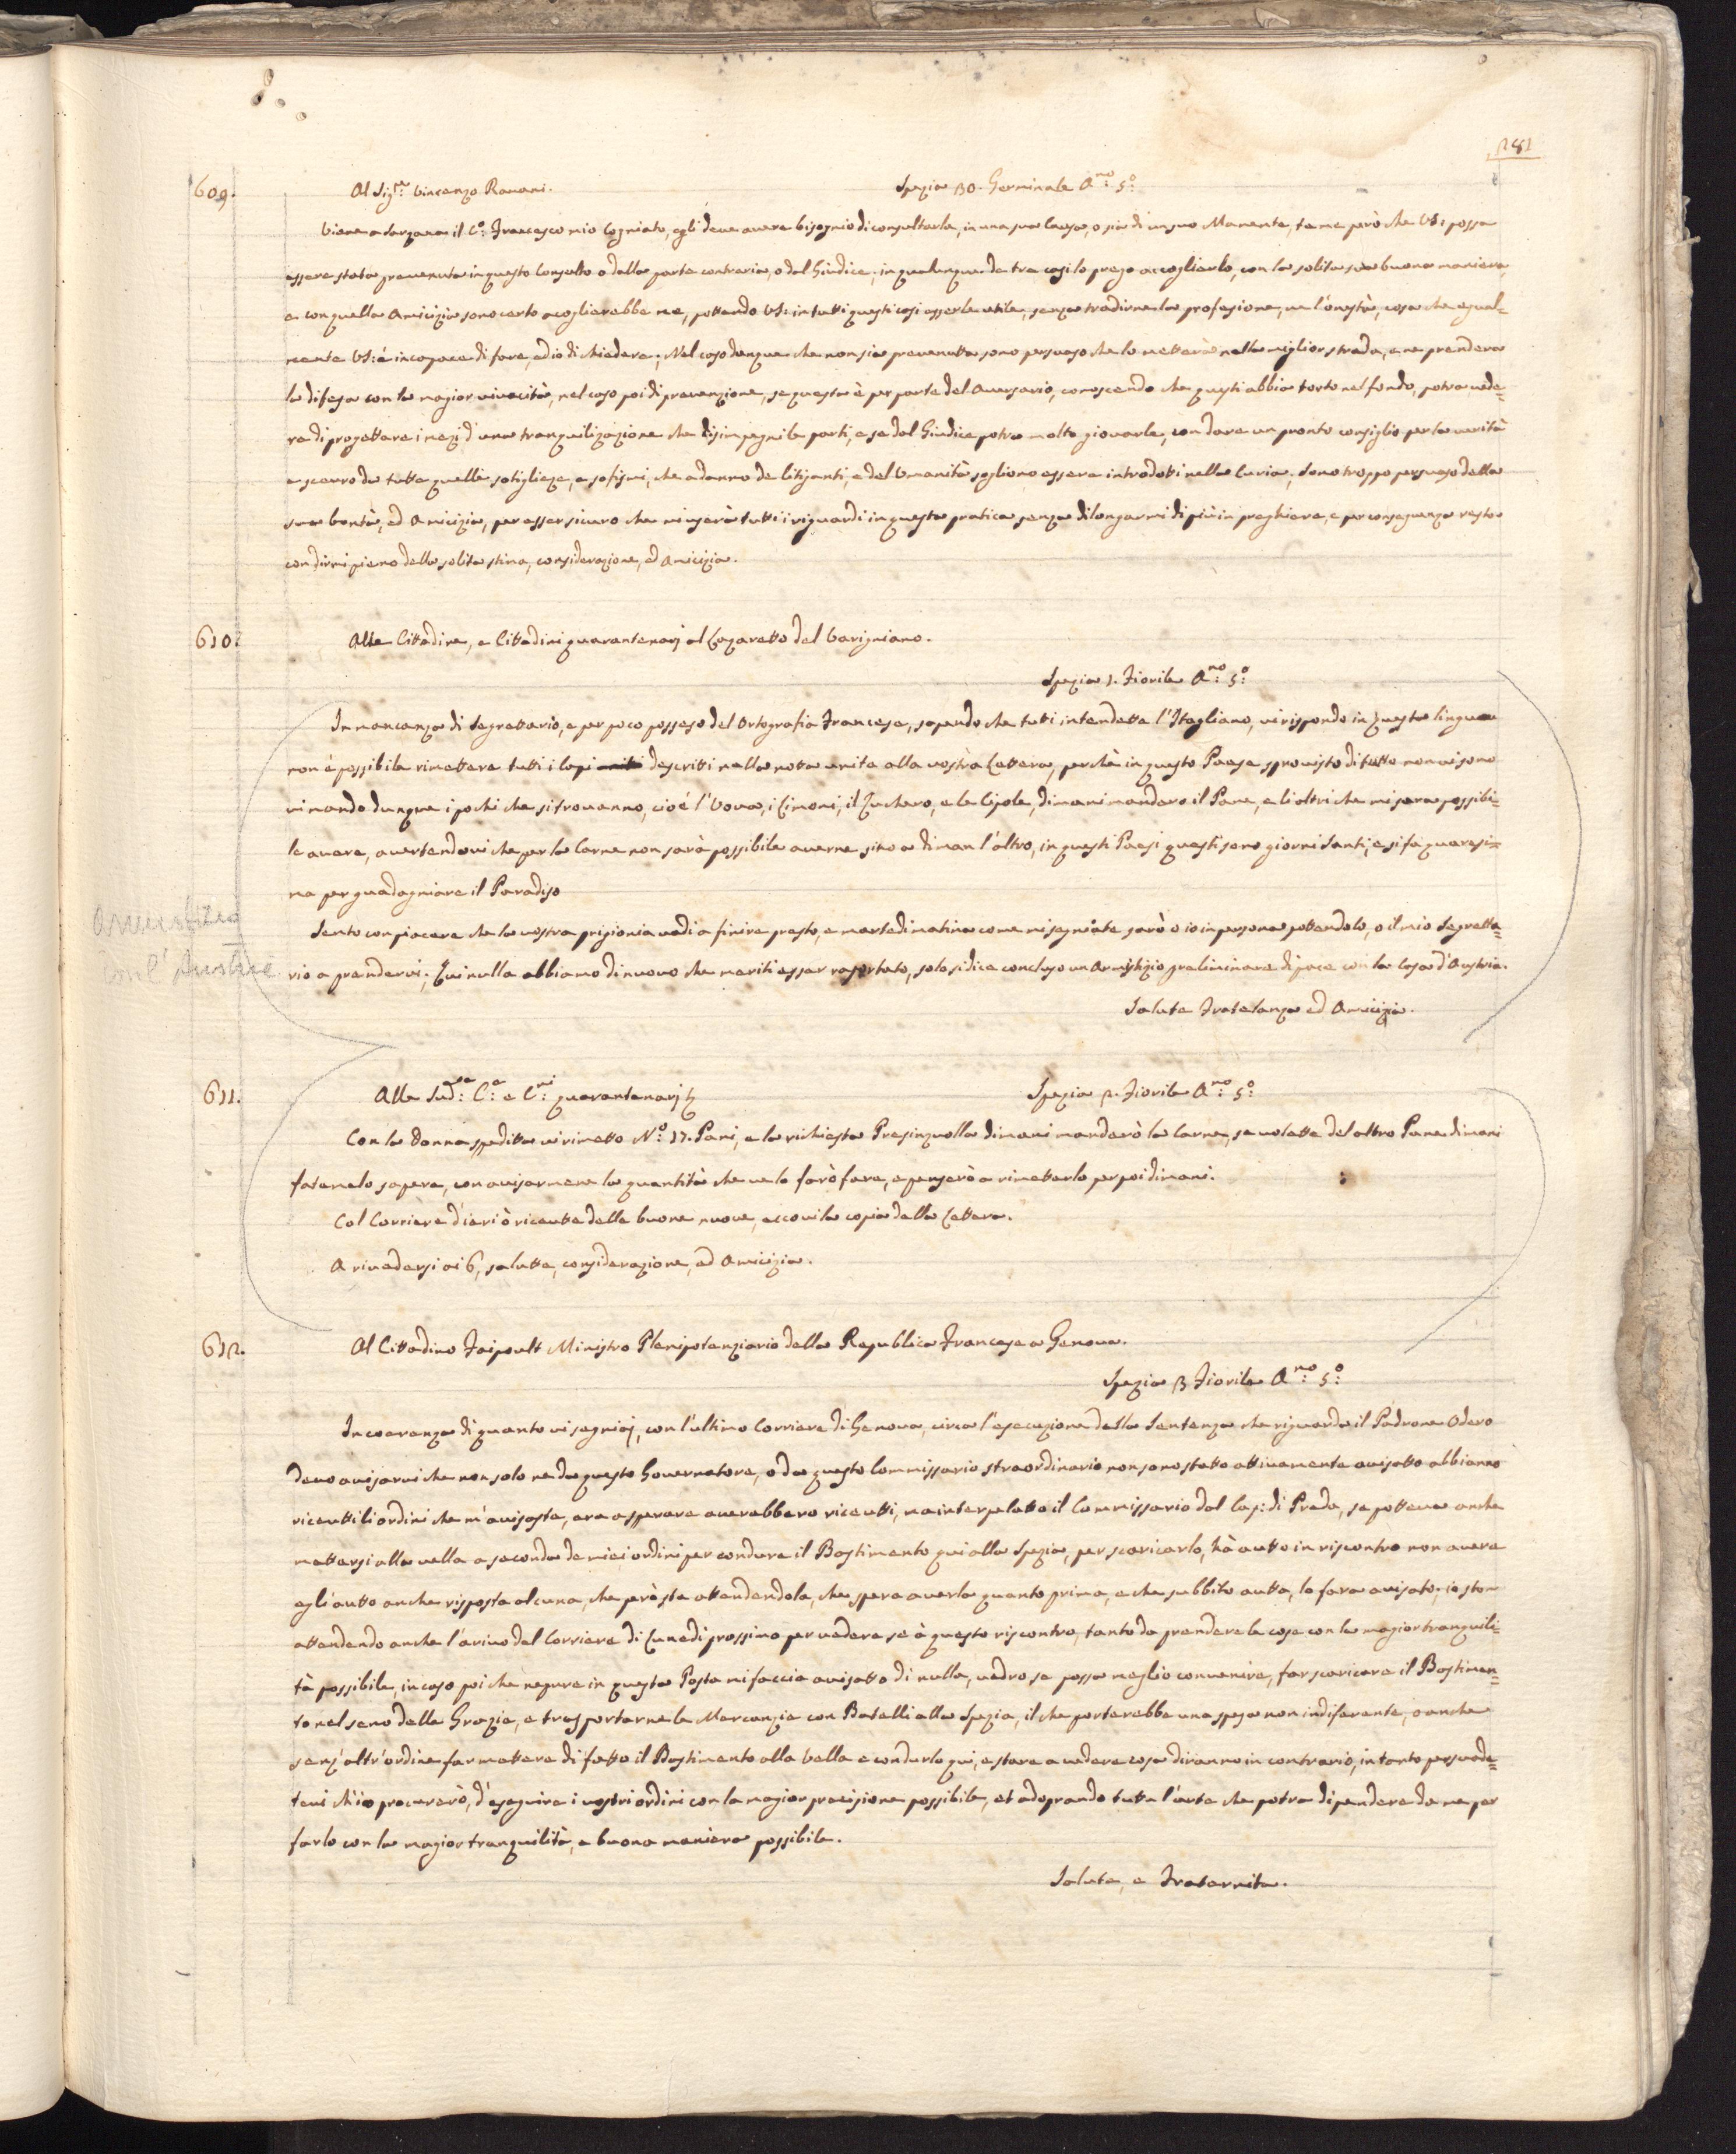 281
609. Al Sig:re Vincenzo Ravani. Spezia 30. Germinale A:no 5:o
Viene a Sarzana il C:o Francesco mio Cogniato, egli deve avere bisognio di consultarla, in una sua Causa, o sia di un suo Manente, teme però che VS: possa
essere stata prevenuta in questo Consulto o dalla parte contraria, o dal Giudice, in qualunque de tre casi lo prego accoglierlo, con la solita sua buona maniera,
e con quella Amicizia sono certo acoglierebbe me, pottendo VS: in tutti questi casi esserle utile, senza tradirne la profesione, ne l'onestà, cosa che egual=
mente VS: è incapace di fare, ed io di chiedere; Nel caso dunque che non sia prevenutta sono persuaso che lo metterà nella miglior strada, e ne prenderà
la difesa con la magior vivacità, nel caso poi di prevenzione, se questa è per parte del Aversario, conoscendo che questi abbia torto nel fondo, potra vede=
re di progettare i mezi d'una tranquilizazione che disimpegni le parti, e se dal Giudice potra molto giovarle, con dare un pronto consiglio per la verità
e scevro da tutte quelle sotigliezze, e sofismi, che a danno de litiganti, e del Umanità sogliono essere introdotti nella Curia. Sono troppo persuaso della
sua bontà, ed Amicizia, per esser sicuro che mi userà tutti i riguardi in questa pratica senza dilongarmi di più in preghiere, e per conseguenza resto
con dirmi pieno della solita stima, considerazione, ed Amicizia.
610. Alle Cittadine, e Cittadini quarantenarj al Lazaretto del Varigniano.
Spezia 1. Fiorile A:no 5:o
In mancanza di Segrettario, e per poco possesso del Ortografia Francese, sapendo che tutti intendette l'Itagliano, vi rispondo in questa lingua
non è possibile rimettere tutti i Capi descritti nella notta unita alla vostra Lettera, perchè in questo Paese sprovisto di tutto non vi sono
vi mando dunque i pochi che si trovanno, cioè l'Uova, i Limoni, il Zuchero, e le Cipole, dimani manderò il Pane, e li altri che mi sara possibi=
le avere, avertendovi che per la Carne non sarà possibile averne sino a diman l'altro, in questi Paesi questi sono giorni Santi, e si fa quaresi=
ma per guadagniare il Paradiso
Sento con piacere che la vostra prigionia vadi a finire presto, e martedi matina come mi segniate sarò o io in persona pottendolo, o il mio Segretta=
rio a prendervi; Qui nulla abbiamo di nuovo che meriti esser raportato, solo si dice concluso un Armistizio preliminare di pace con la Casa d'Austria.
Salute Fratelanza ed Amicizia.
Armistizio
con l'Austria
611. Alle Sud:te C:e e C:ni quarantenarj Spezia 2. Fiorile A:no 5:o
Con la Donna speditta vi rimetto N:o 17. Pani, e la richiesta Presinzuolla dimani manderò la Carne, se volette del altro Pane dimani
fatemelo sapere, con avisarmene la quantità che ve lo farò fare, e penserò a rimetterlo per poi dimani.
Col Corriere d'ieri ò ricevutte delle buone nuove, eccovi la copia della Lettera.
A rivedersi ai 6, salutte, considerazione, ed Amicizia.
612. Al Cittadino Faipoult Ministro Plenipotenziario della Republica Francese a Genova.
Spezia 3 Fiorile A:no 5:o
In coerenza di quanto vi segniaj, con l'ultimo Corriere di Genova, circa l'esecuzione della Sentenza che riguarda il Padrone Odero
devo avisarvi che non solo ne da questo Governatore, o da questo Commissario straordinario non sono statto attivamente avisatto abbianno
ricevutti li ordini che m'avisaste, era a sperare averebbero ricevutti, ma interpelatto il Commissario dal Cap: di Preda, se potteva anche
mettersi alla vella a seconda de miei ordini per condure il Bastimento qui alla Spezia, per scaricarlo, hà autto in riscontro non avere
egli autto anche risposta alcuna, che però sta attendendola, che spera averla quanto prima, e che subbito autta, lo fara avisato; io sto
attendendo anche l'arivo del Corriere di Lunedi prossimo per vedere se à questo riscontro, tanto da prendere le cose con la magior tranquili=
tà possibile, in caso poi che nepure in questa Posta mi faccia avisatto di nulla, vedro se possa meglio convenire, far scaricare il Bastimen=
to nel seno delle Grazie, e trasportarne le Mercanzie con Batelli alla Spezia, il che porterebbe una spesa non indiferente, o anche
senz'altr'ordine far mettere di fatto il Bastimento alla Vella e condurlo qui, e stare a vedere cosa diranno in contrario, in tanto persuade=
tevi ch'io procurerò, d'eseguire i vostri ordini con la magior precisione possibile, et adoprando tutta l'arte che potra dipendere da me per
farlo con la magior tranquilità, e buona maniera possibile.
Salute, e Fraternita.